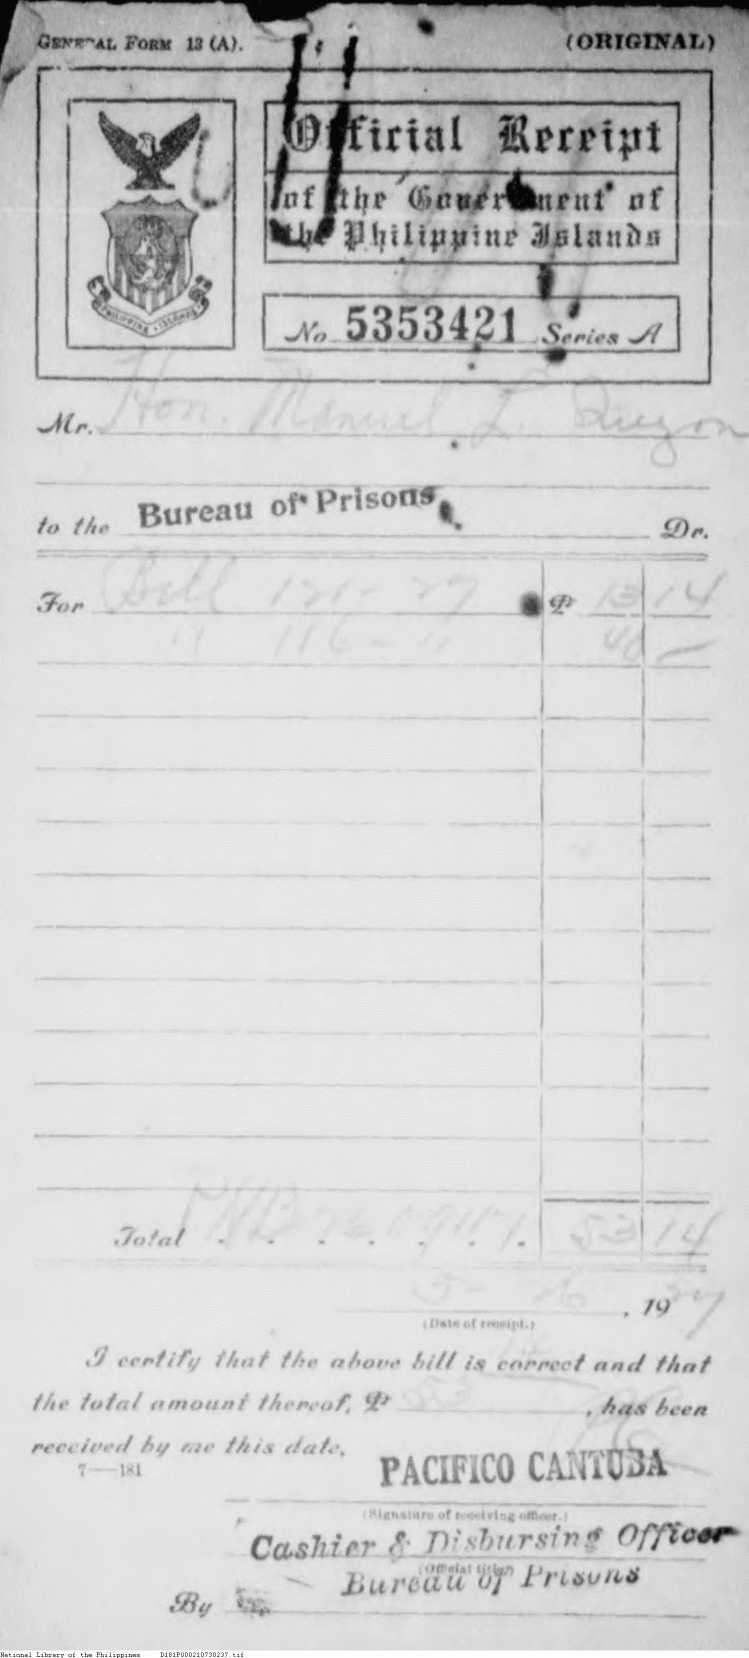 GENERAL FORM 13 (A).
(ORIGINAL)
Official Receipt
of the Government of
the Philippine Islands
PHILIPPINE ISLANDS
No. 5353421 Series A
Mr. Hon. Manuel L. Quezon
to the Bureau of Prisons Dr.
For Bill 121-27 ₱ 13 14
" 116-" 40 -
Total PNB 53 14
5- 16, 1927
(Date of receipt.)
I certify that the above bill is correct and that
the total amount thereof, ₱ , has been
received by me this date.
7—181
PACIFICO CANTUBA
(Signature of receiving officer.)
Cashier & Disbursing Officer
(Official title)
Bureau of Prisons
By
National Library of the Philippines D181P000210730237.tif